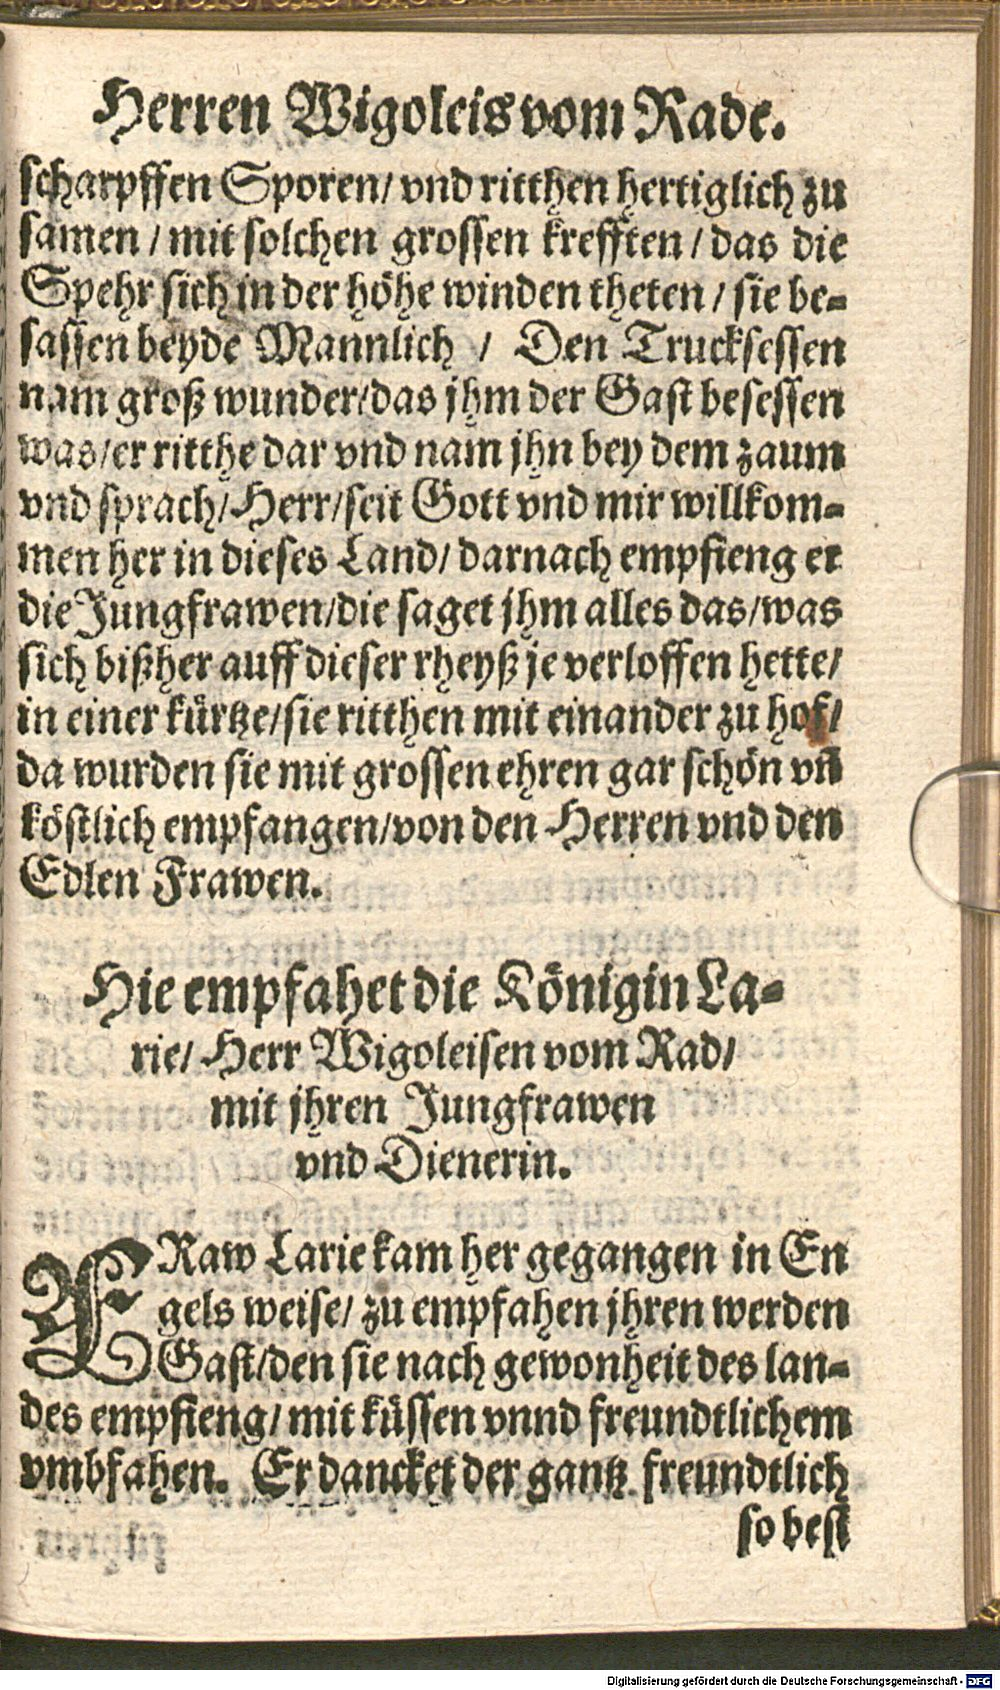 Herren Wigoleis vom Rade.
scharpffen Sporen/ vnd ritthen hertiglich zu
samen / mit solchen grossen krefften / das die
Spehr sich in der höhe winden theten / sie be-
sassen beyde Mannlich / Den Trucksessen
nam groß wunder/das jhm der Gast besessen
was/er ritthe dar vnd nam jhn bey dem zaum
vnd sprach/Herr/seit Gott vnd mir willkom-
men her in dieses Land/ darnach empfieng er
die Jungfrawen/die saget jhm alles das/was
sich bißher auff dieser rheyß je verloffen hette/
in einer kürtze/sie ritthen mit einander zu hof/
da wurden sie mit grossen ehren gar schön vñ
köstlich empfangen/von den Herren vnd den
Edlen Frawen.
Hie empfahet die Königin La-
rie/ Herr Wigoleisen vom Rad/
mit jhren Jungfrawen
vnd Dienerin.
FRaw Larie kam her gegangen in En
gels weise/ zu empfahen jhren werden
Gast/den sie nach gewonheit des lan-
des empfieng/ mit küssen vnnd freundtlichem
vmbfahen. Er dancket der gantz freundtlich
so best
Digitalisierung gefördert durch die Deutsche Forschungsgemeinschaft - DFG